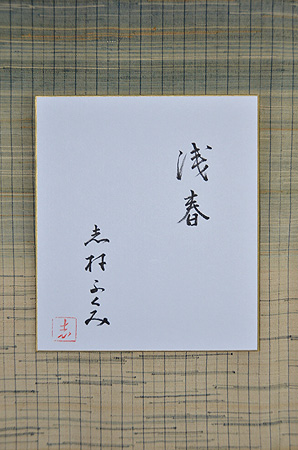 浅春
志村ふくみ
志